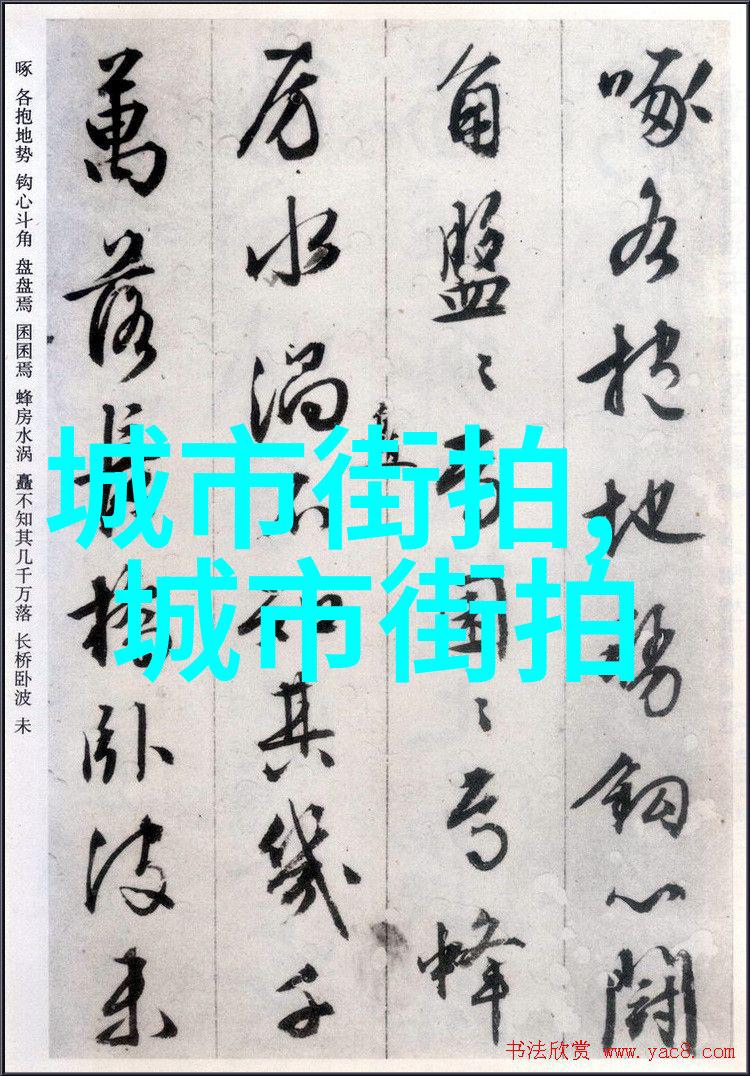 啄各抱地勢鈎心鬪
角盤〻焉囷〻焉蜂
房水渦矗不知其幾千
萬落長橋卧波未
啄 各抱地势 钩心斗角 盘盘焉 囷囷焉 蜂房水涡 矗不知其几千万落 长桥卧波 未
城市街拍,
城市街拍
书法欣赏 www.yac8.com